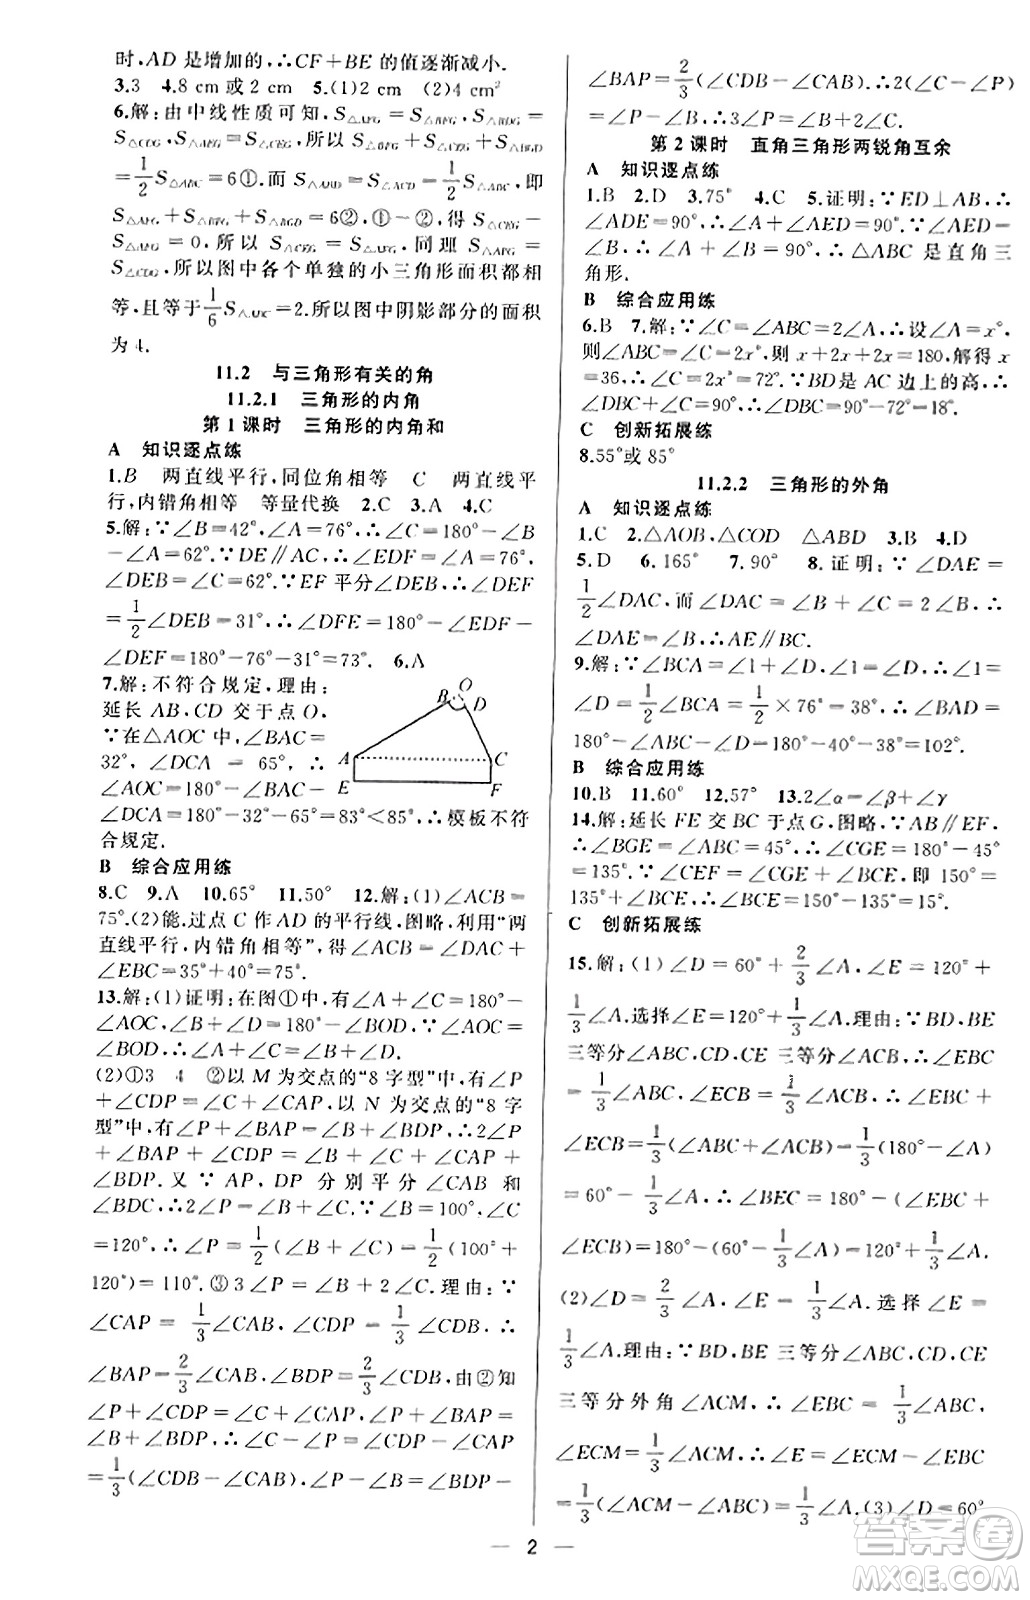 时,AD 是增加的,∴CF+BE 的值逐渐减小.
3.3 4.8 cm 或 2 cm 5.(1)2 cm (2)4 cm²
6.解:由中线性质可知,
=1/2 S△ABC=6①,而
=0,所以
等,且等于1/6 S△ABC=2.所以图中阴影部分的面积
为 4.
11.2 与三角形有关的角
11.2.1 三角形的内角
第 1 课时 三角形的内角和
A 知识逐点练
1.B 两直线平行,同位角相等 C 两直线平
行,内错角相等 等量代换 2.C 3.A 4.C
5.解:∵∠B=42°,∠A=76°,∴∠C=180°-∠B
-∠A=62°.∵DE∥AC,∴∠EDF=∠A=76°,
∠DEB=∠C=62°.∵EF 平分∠DEB,∴∠DEF
=1/2∠DEB=31°,∴∠DFE=180°-∠EDF-
∠DEF=180°-76°-31°=73°. 6.A
7.解:不符合规定,理由:
延长 AB,CD 交于点 O,
∵在△AOC 中,∠BAC=
32°,∠DCA=65°,∴
∠AOC=180°-∠BAC-
∠DCA=180°-32°-65°=83°<85°,∴模板不符
合规定.
B O D
A C
E F
B 综合应用练
8.C 9.A 10.65° 11.50° 12.解:(1)∠ACB=
75°.(2)能,过点 C 作 AD 的平行线,图略,利用“两
直线平行,内错角相等”,得∠ACB=∠DAC+
∠EBC=35°+40°=75°.
13.解:(1)证明:在图①中,有∠A+∠C=180°-
∠AOC,∠B+∠D=180°-∠BOD,∵∠AOC=
∠BOD,∴∠A+∠C=∠B+∠D.
(2)①3 4 ②以 M 为交点的“8 字型”中,有∠P
+∠CDP=∠C+∠CAP,以 N 为交点的“8 字
型”中,有∠P+∠BAP=∠B+∠BDP,∴2∠P
+∠BAP+∠CDP=∠B+∠C+∠CAP+
∠BDP.又∵AP,DP 分别平分∠CAB 和
∠BDC,∴2∠P=∠B+∠C.∵∠B=100°,∠C
=120°,∴∠P=1/2(∠B+∠C)=1/2(100°+
120°)=110°.③3∠P=∠B+2∠C.理由:∵
∠CAP=1/3∠CAB,∠CDP=1/3∠CDB,∴
∠BAP=2/3∠CAB,∠BDP=2/3∠CDB,由②知
∠P+∠CDP=∠C+∠CAP,∠P+∠BAP=
∠B+∠BDP,∴∠C-∠P=∠CDP-∠CAP
=1/3(∠CDB-∠CAB),∠P-∠B=∠BDP-
∠BAP=2/3(∠CDB-∠CAB).∴2(∠C-∠P)
=∠P-∠B,∴3∠P=∠B+2∠C.
第 2 课时 直角三角形两锐角互余
A 知识逐点练
1.B 2.D 3.75° 4.C 5.证明:∵ED⊥AB,∴
∠ADE=90°,∴∠A+∠AED=90°.∵∠AED=
∠B,∴∠A+∠B=90°,∴△ABC 是直角三
角形.
B 综合应用练
6.B 7.解:∵∠C=∠ABC=2∠A,∴设∠A=x°,
则∠C=∠ABC=2x°,∴x+2x+2x=180,解得 x
=36,∴∠C=2x°=72°.∵BD是 AC 边上的高,∴
∠DBC=90°-∠C=90°-72°=18°.
C 创新拓展练
8.55°或 85°
11.2.2 三角形的外角
A 知识逐点练
1.C 2.△AOB,△COD △ABD 3.B 4.D
5.D 6.165° 7.90° 8.证明:∵∠DAE=
1/2∠DAC,而∠DAC=∠B+∠C=2∠B,∴
∠DAE=∠B,∴AE∥BC.
9.解:∵∠BCA=∠1+∠D,∠1=∠D,∴∠1=
∠D=1/2∠BCA=1/2×76°=38°,∴∠BAD=
180°-∠BAC-∠D=180°-40°-38°=102°.
B 综合应用练
10.B 11.60° 12.57° 13.2∠α=∠β+∠γ
14.解:延长 FE 交 BC 于点 G,图略,∵AB∥EF,
∴∠BGE=∠ABC=45°,∴∠CGE=180°-45°
=135°.∵∠CEF=∠CGE+∠BCE,即 150°=
135°+∠BCE,∴∠BCE=150°-135°=15°.
C 创新拓展练
15.解:(1)∠D=60°+2/3∠A,∠E=120°+
1/3∠A.选择∠E=120°+1/3∠A.理由:∵BD,BE
三等分∠ABC,CD,CE 三等分∠ACB,∴∠EBC
=1/3∠ABC,∠ECB=1/3∠ACB,∴∠EBC+
∠ECB=1/3(∠ABC+∠ACB)=1/3(180°-∠A)
=60°-1/3∠A,∴∠BEC=180°-(∠EBC+
∠ECB)=180°-(60°-1/3∠A)=120°+1/3∠A.
(2)∠D=2/3∠A,∠E=1/3∠A.选择∠E=
1/3∠A.理由:∵BD,BE 三等分∠ABC,CD,CE
三等分外角∠ACM,∴∠EBC=1/3∠ABC,
∠ECM=1/3∠ACM.∴∠E=∠ECM-∠EBC
=1/3(∠ACM-∠ABC)=1/3∠A.(3)∠D=60°
— 2 —
答案圈
MXQE.COM